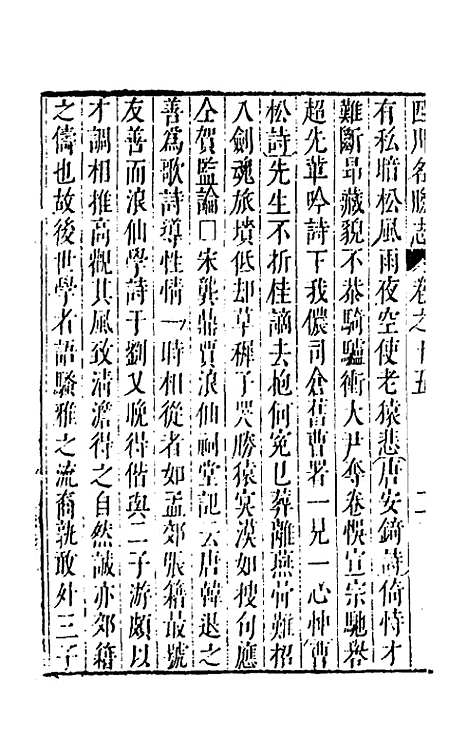 四川名勝志 卷之十五 二
有私暗松風雨夜空使老猿悲唐安錡詩倚恃才
難斷昻藏貌不恭騎驢衝大尹奪卷悞宣宗馳譽
超先軰吟詩下我儂司倉舊曹署一見一心忡曹
松詩先生不折桂謫去抱何寃已葬離燕骨難招
入劍魂旅墳低却草稺子哭勝猿寞漠如搜句應
仝賀監論□宋龔鼎賈浪仙祠堂記云唐韓退之
善爲歌詩導性情一時相從者如孟郊張籍最號
友善而浪仙學詩于劉又晩得偕與二子游頗以
才調相推高觀其風致淸澹得之自然誠亦郊籍
之儔也故後世學者語騷雅之流裔孰敢外三子